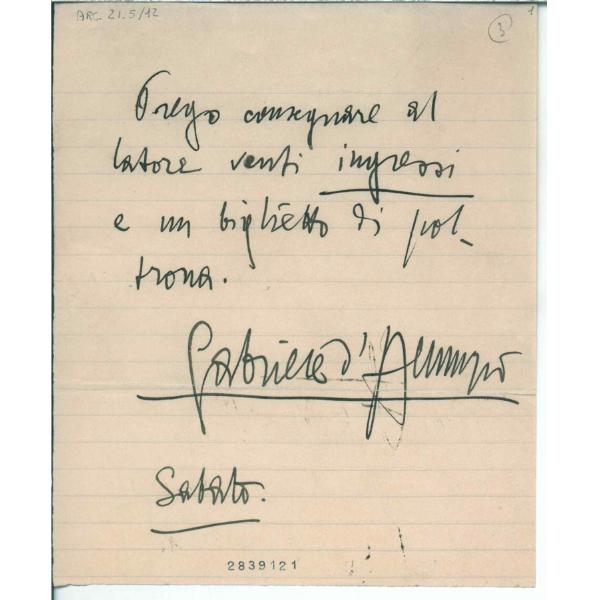 ARC. 21.5/12
3
1
Prego consegnare al
latore venti ingressi
e un biglietto di pol-
trona.
Gabriele d'Annunzio
Sabato.
2839121